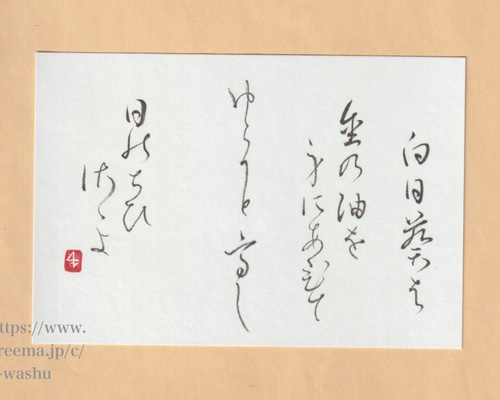 向日葵は
金乃油を
身にあびて
ゆらりと高し
日のちひ
さゝよ
ttps://www.
reema.jp/c/
-washu